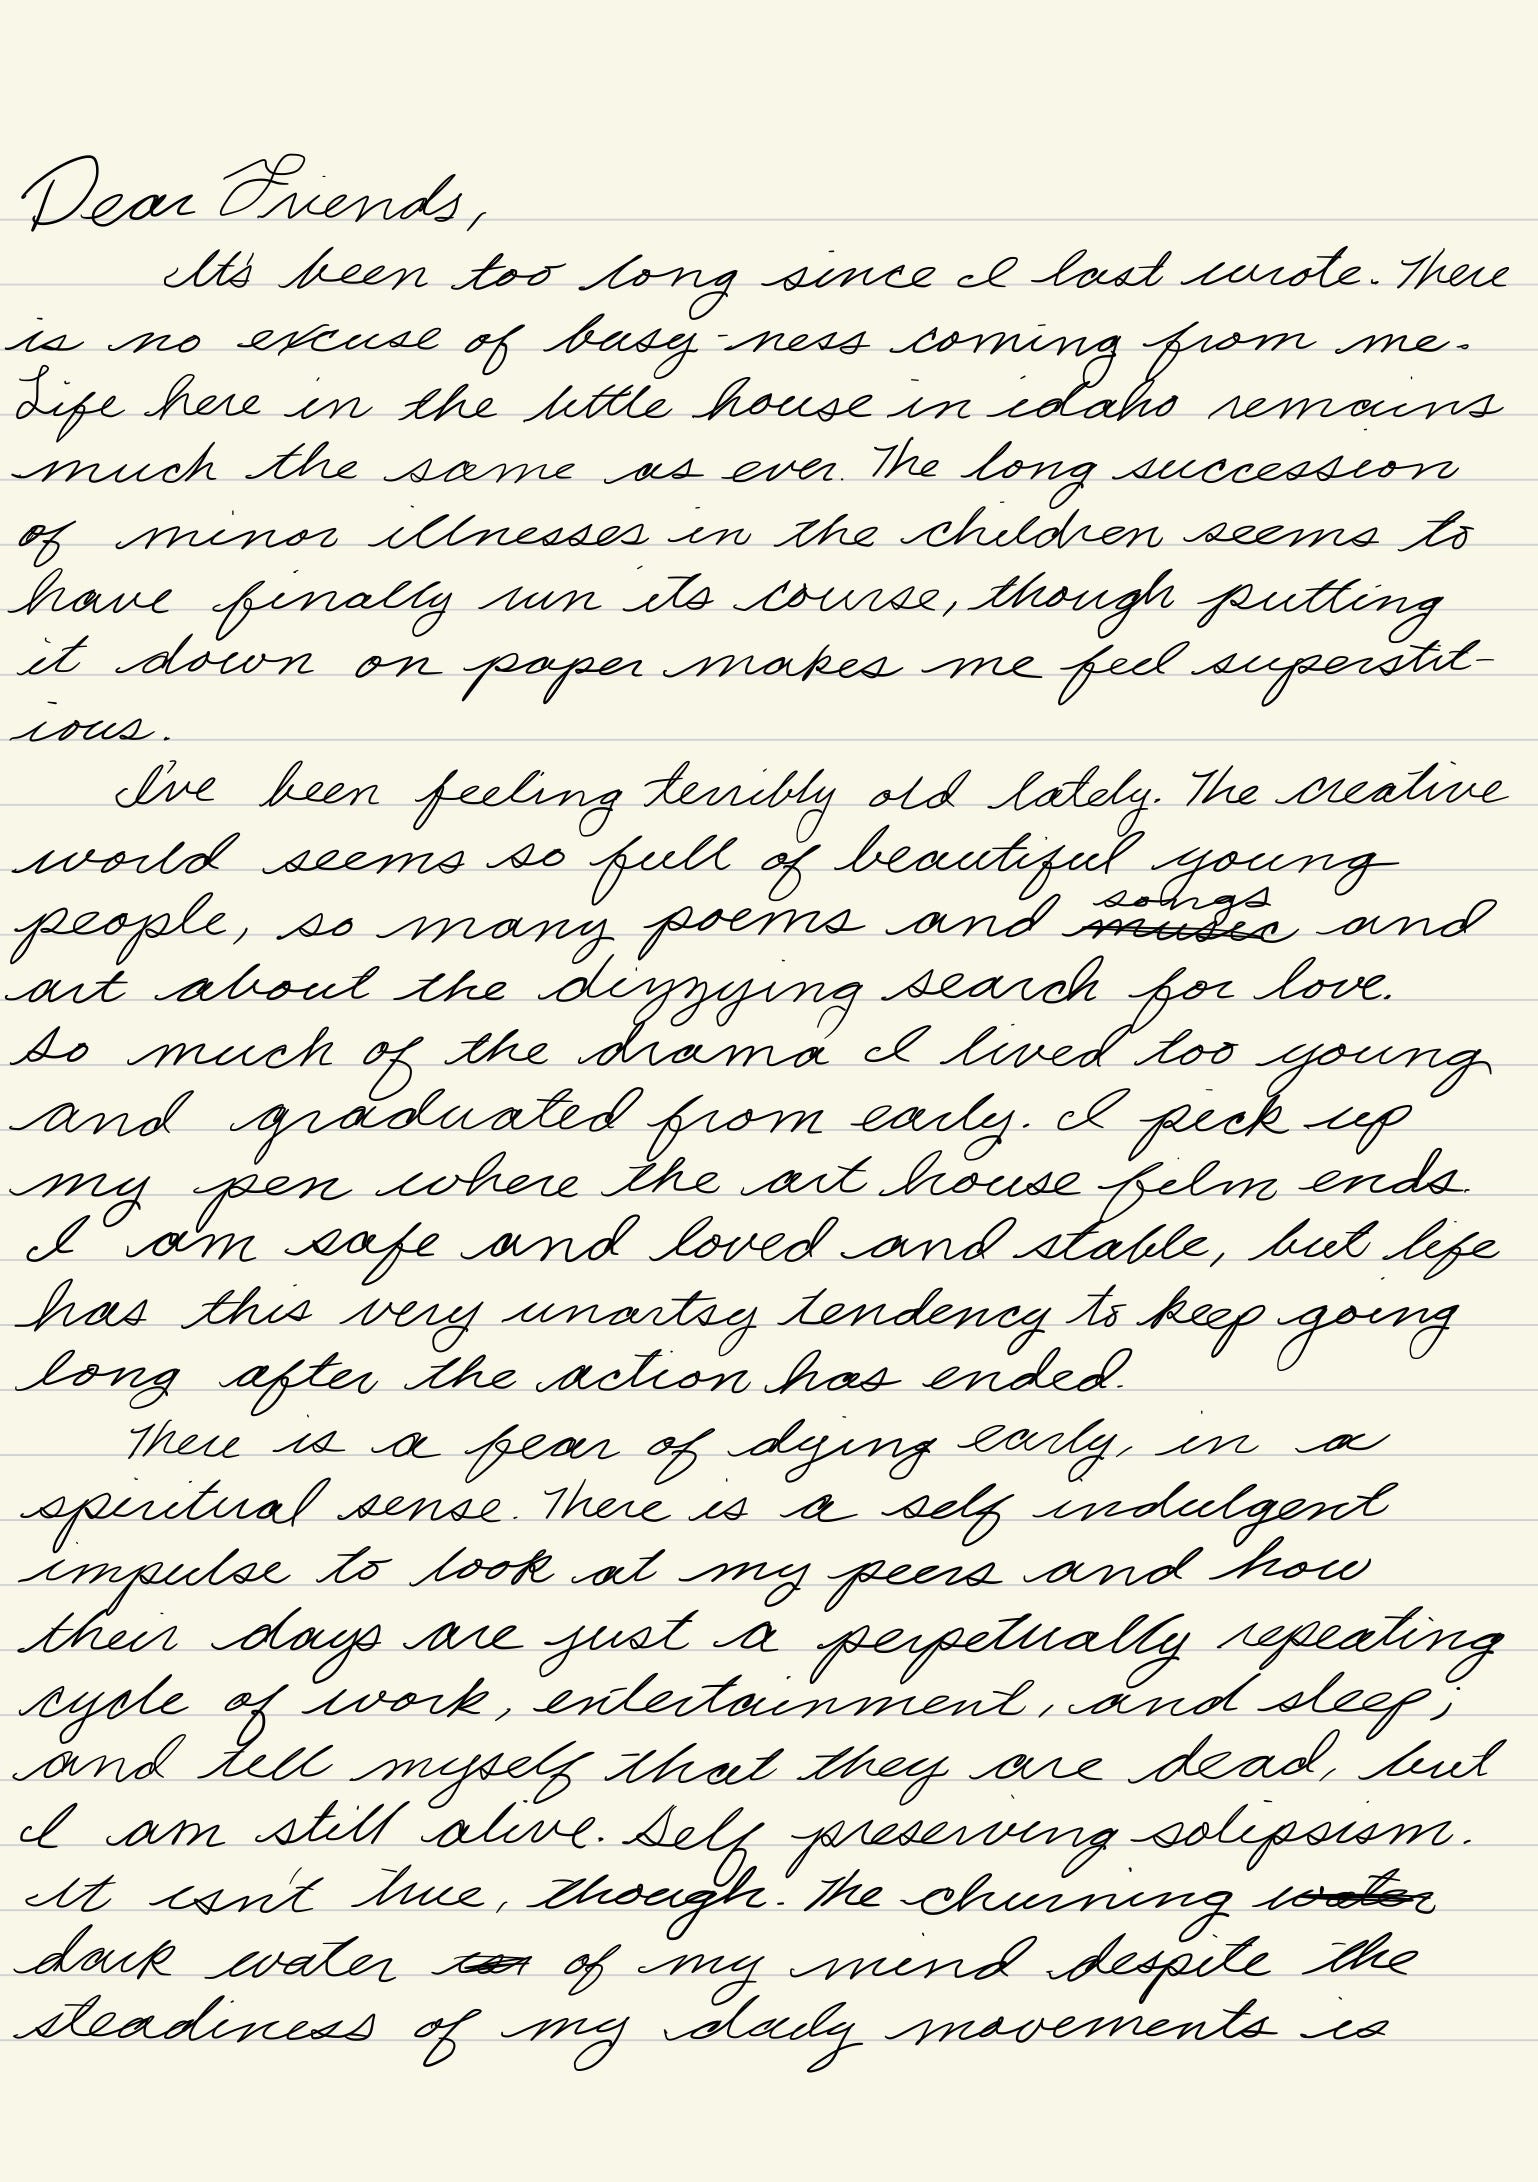 Dear Friends,
It's been too long since I last wrote. There
is no excuse of busy-ness coming from me.
Life here in the little house in idaho remains
much the same as ever. The long succession
of minor illnesses in the children seems to
have finally run its course, though putting
it down on paper makes me feel superstit-
ious.
I've been feeling terribly old lately. The creative
world seems so full of beautiful young
songs
people, so many poems and music and
art about the dizzying search for love.
So much of the drama I lived too young
and graduated from early. I pick up
my pen where the art house film ends.
I am safe and loved and stable, but life
has this very unartsy tendency to keep going
long after the action has ended.
There is a fear of dying early, in a
spiritual sense. There is a self indulgent
impulse to look at my peers and how
their days are just a perpetually repeating
cycle of work, entertainment, and sleep;
and tell myself that they are dead, but
I am still alive. Self preserving solipsism.
It isn't true, though. The churning water
dark water of my mind despite the
steadiness of my daily movements is